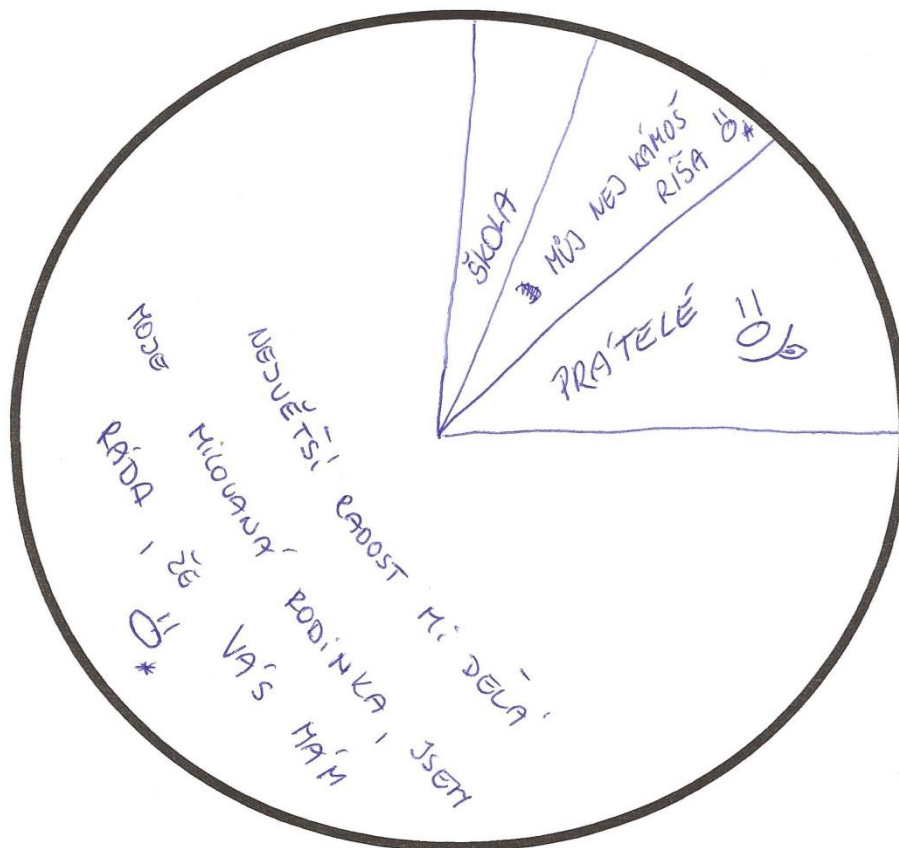 ŠKOLA
MŮJ NEJ KÁMOŠ
RÍŠA
PRÁTELÉ
NEJVĚTŠÍ RADOST MI DĚLÁ
MOJE MILOVANÁ RODINKA, JSEM
RÁDA, ŽE VÁS MÁM